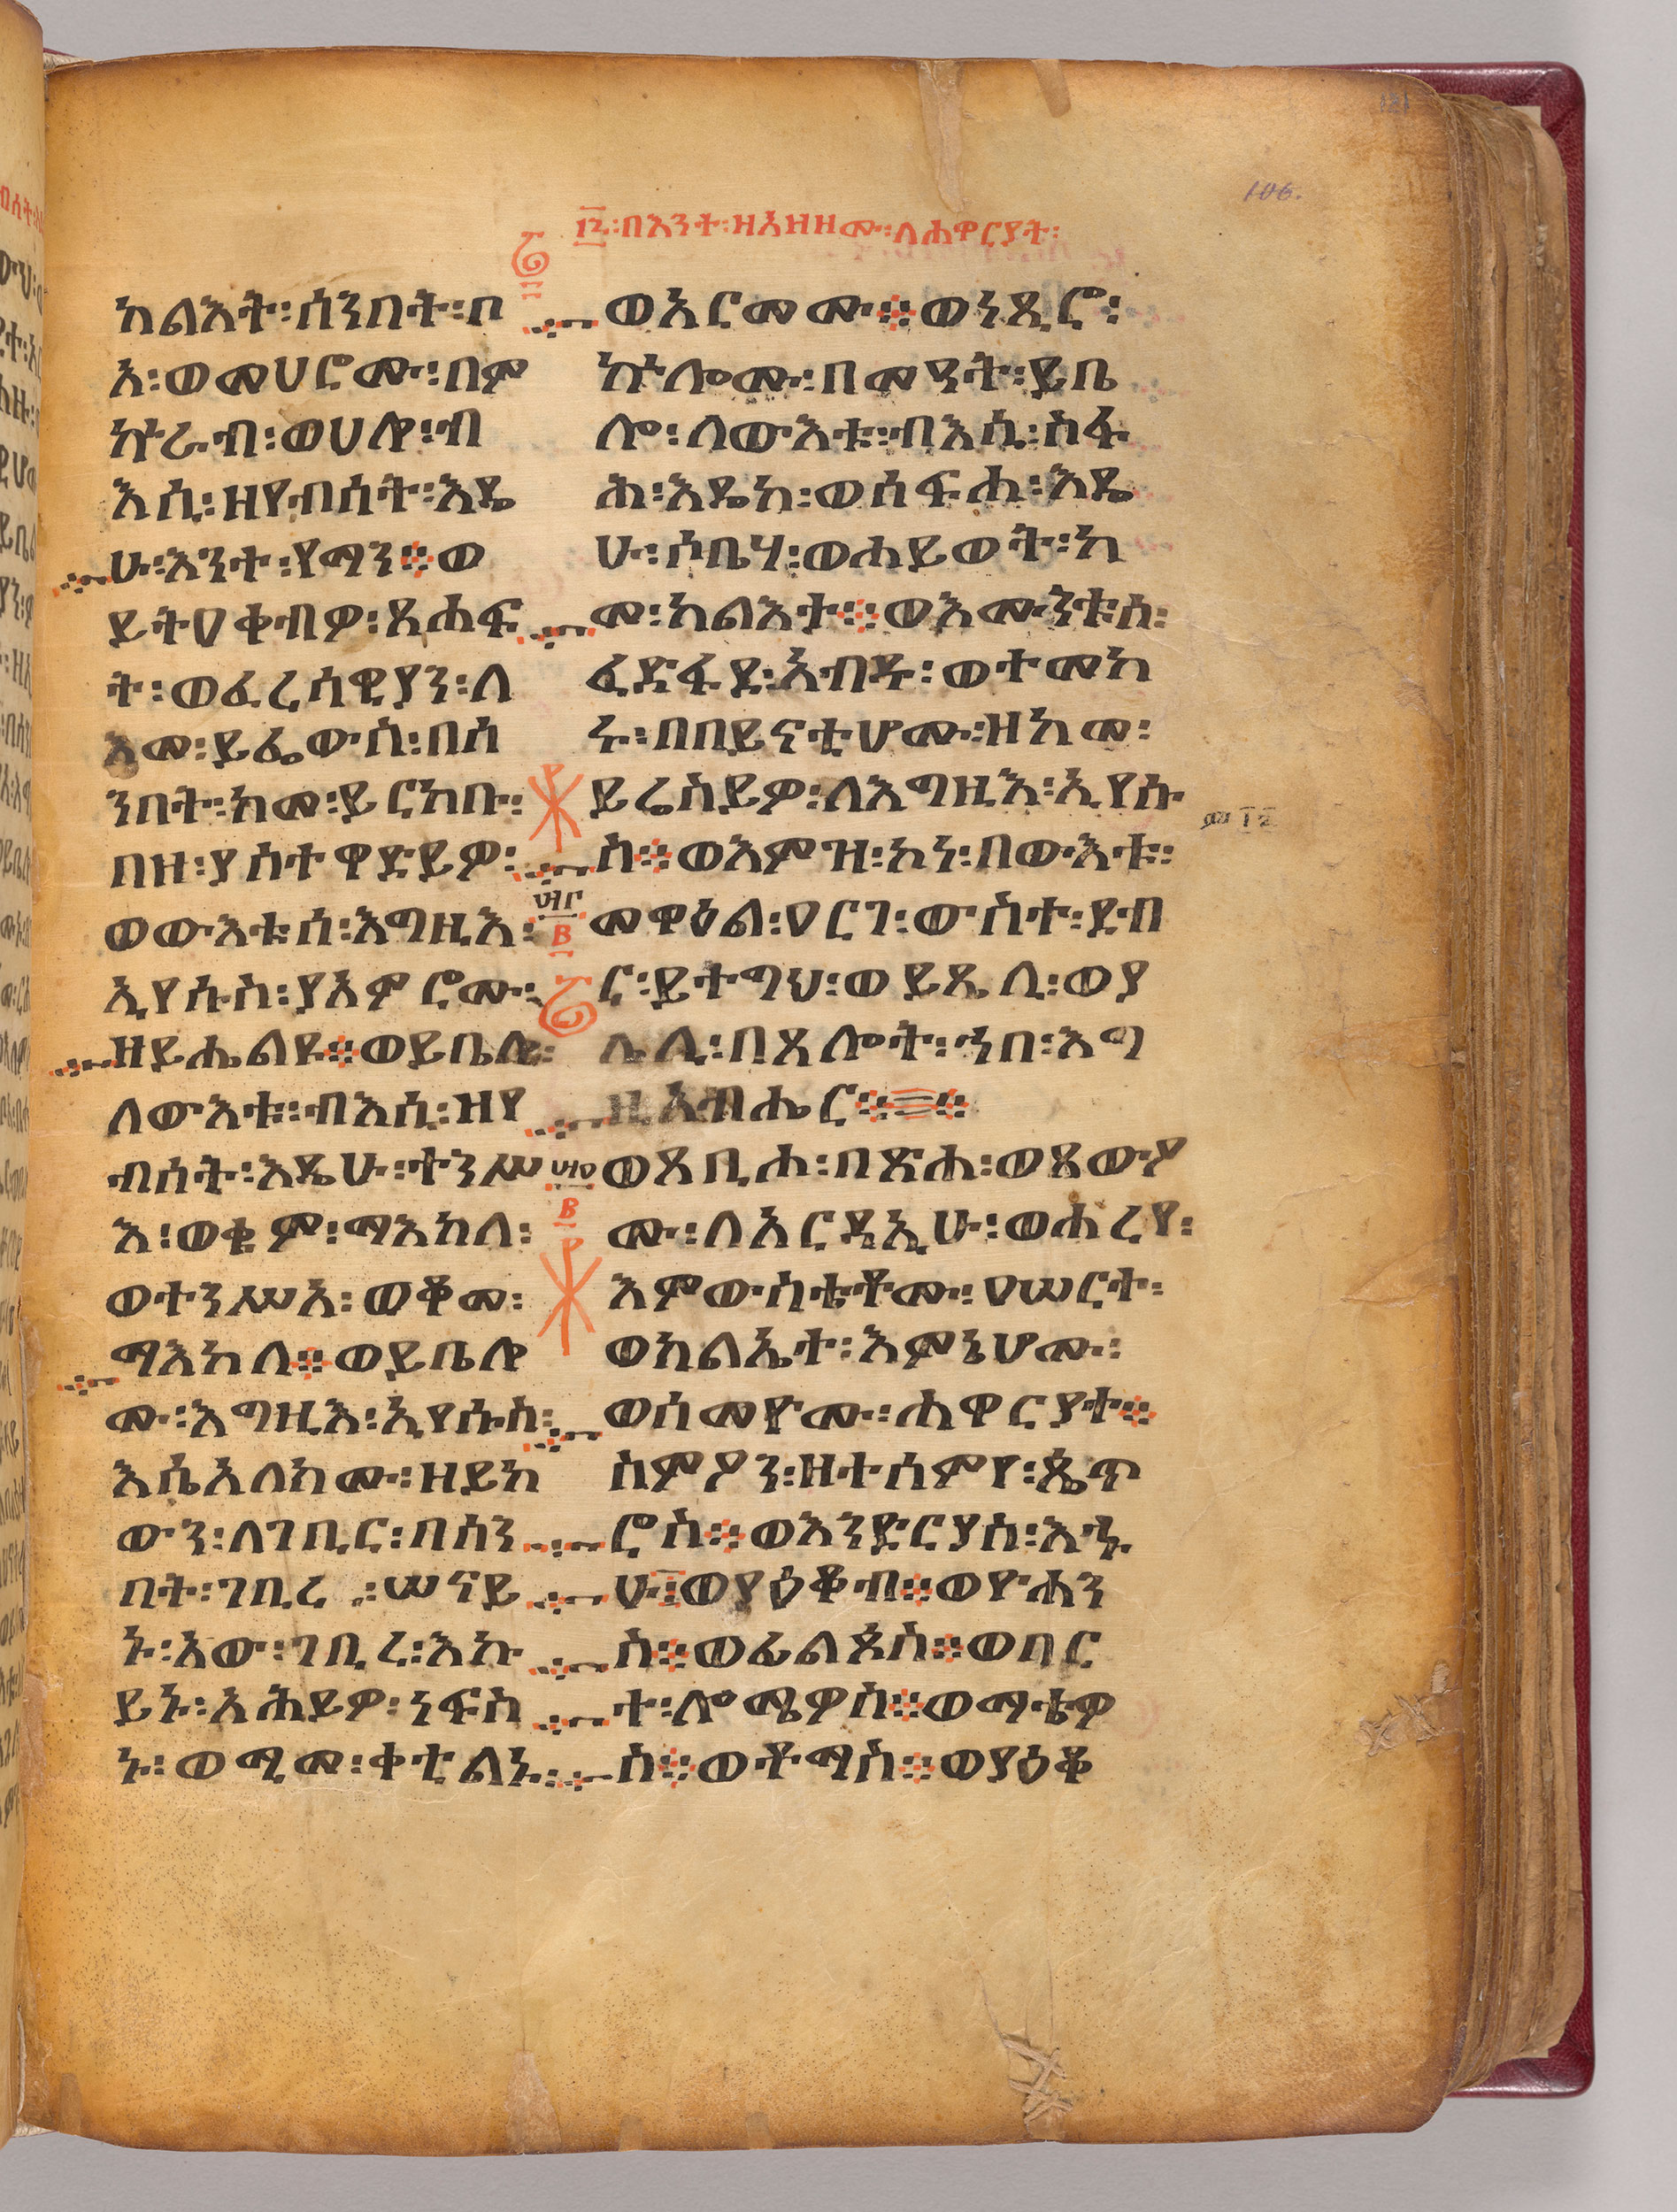 106.
፲፪፡በእንተ፡ዘአዘዘሙ፡ለሐዋርያት፡
ካልእት፡ሰንበት፡ቦ
አ፡ወመሀሮሙ፡በም
ኵራብ፡ወሀሎ፡ብ
እሲ፡ዘየብሰት፡እዴ
ሁ፡እንተ፡የማን፨ወ
ይትዐቀብዎ፡ጸሐፍ
ት፡ወፈሪሳዊያን፡ለ
እመ፡ይፌውስ፡በሰ
ንበት፡ከመ፡ይርከቡ፡
በዘ፡ያስተዋድይዎ፡
ወውእቱሰ፡እግዚእ፡
ኢየሱስ፡ያአምሮሙ፡
ዘይሔልዩ፨ወይቤሎ፡
ለውእቱ፡ብእሲ፡ዝየ
ብሰት፡እዴሁ፡ተንሥ
እ፡ወቁም፡ማእከለ፡
ወተንሥአ፡ወቆመ፡
ማእከለ፨ወይቤሎ
ሙ፡እግዚእ፡ኢየሱስ፡
እሴአለክሙ፡ዘይከ
ውን፡ለገቢር፡በሰን
በት፡ገቢረ፡ሠናይ
ኑ፡አው፡ገቢረ፡እኩ
ይኑ፡አሕይዎ፡ነፍስ
ኑ፡ወሚመ፡ቀቲልኑ፡
ወአርመሙ፨ወነጺሮ፡
ኵሎሙ፡በመዓት፡ይቤ
ሎ፡ለውእቱ፡ብእሲ፡ስፋ
ሕ፡እዴከ፡ወሰፍሐ፡እዴ
ሁ፡ሶቤሃ፡ወሐይወት፡ከ
መ፡ካልእታ፨ወእሙንቱሰ፡
ፈድፋደ፡አብዱ፡ወተመከ
ሩ፡በበይናቲሆሙ፡ዘከመ፡
ይሬስይዎ፡ለእግዚእ፡ኢየሱ
ስ፨ወእምዝ፡ኮነ፡በውእቱ፡
መዋዕል፡ዐርገ፡ውስተ፡ደብ
ር፡ይተግህ፡ወይጼሊ፡ወያ
ሌሊ፡በጸሎት፡ኀበ፡እግ
ዚአብሔር፨
ወጸቢሐ፡በጽሐ፡ወጸውዖ
ሙ፡ለአርዳኢሁ፡ወሐረየ፡
እምውስቴቶሙ፡ዐሠርተ፡
ወክልኤተ፡እምኔሆሙ፡
ወሰመዮሙ፡ሐዋርያተ፨
ስምዖን፡ዘተሰምየ፡ጴጥ
ሮስ፨ወእንድርያስ፡እኁ
ሁ፨ወያዕቆብ፨ወዮሐን
ስ፨ወፊልጶስ፨ወበር
ተ፡ሎሜዎስ፨ወማቴዎ
ስ፨ወቶማስ፨ወያዕቆ